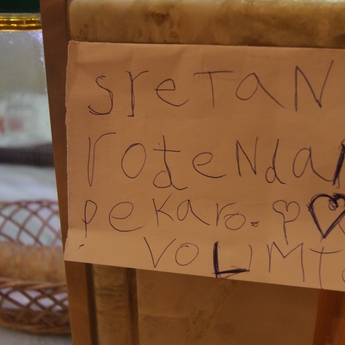 sreTaN
roteNdaN
pekaro. ♡♡
VOLIMTe